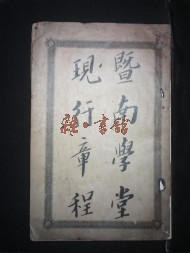 暨南學堂
現行章程